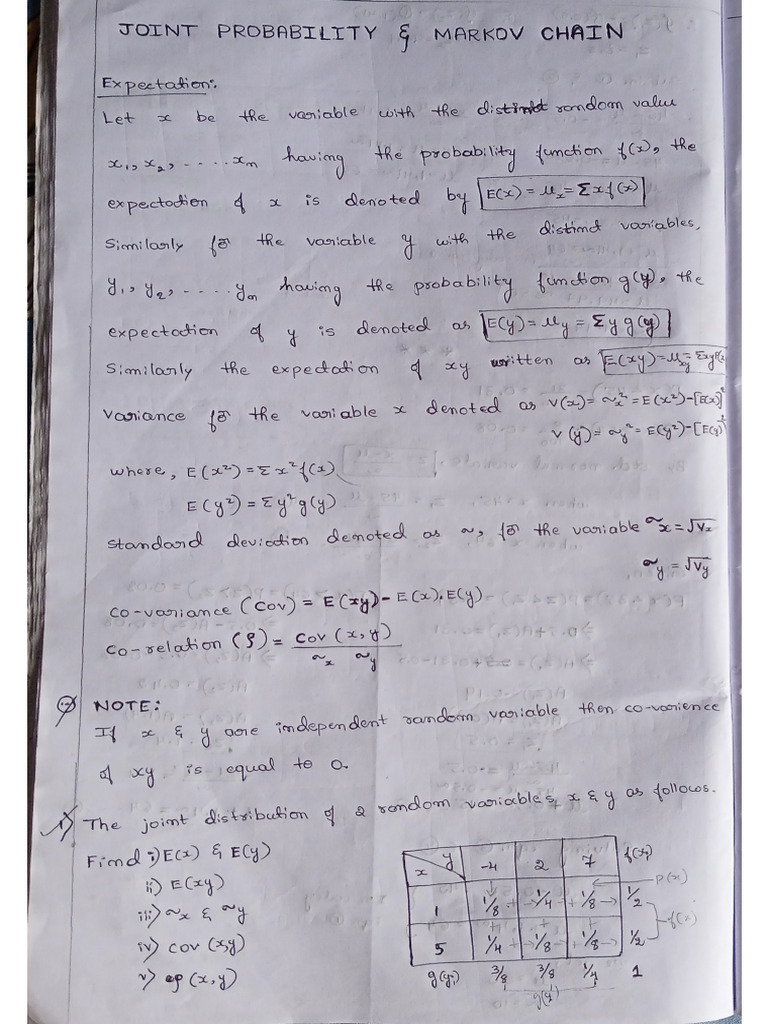 JOINT PROBABILITY & MARKOV CHAIN
Expectation:
Let x be the variable with the distinct random value
x₁, x₂, ..... xₙ having the probability function f(x), the
expectation of x is denoted by E(x) = μₓ = Σxf(x)
Similarly for the variable y with the distinct variables,
y₁, y₂, ..... yₙ having the probability function g(y), the
expectation of y is denoted as E(y) = μy = Σy g(y)
Similarly the expectation of xy written as E(xy) = μxy = Σxy
variance for the variable x denoted as V(x) = σx² = E(x²) - [E(x)]²
V(y) = σy² = E(y²) - [E(y)]²
where, E(x²) = Σx²f(x)
E(y²) = Σy²g(y)
standard deviation denoted as σ, for the variable σx = √Vx
σy = √Vy
co-variance (cov) = E(xy) - E(x).E(y)
co-relation (ρ) = cov (x, y)
σx σy
NOTE:
If x & y are independent random variable then co-varience
of xy is equal to 0.
1) The joint distribution of 2 random variables, x & y as follows.
Find i) E(x) & E(y)
ii) E(xy)
iii) σx & σy
iv) cov (x,y)
v) ρ (x, y)
x y -4 2 7 f(xi)
1 1/8 + 1/4 + 1/8 1/2 P(x)
+ + +
5 1/4 + 1/8 + 1/8 1/2 f(x)
g(yi) 3/8 3/8 1/4 1
g(y)